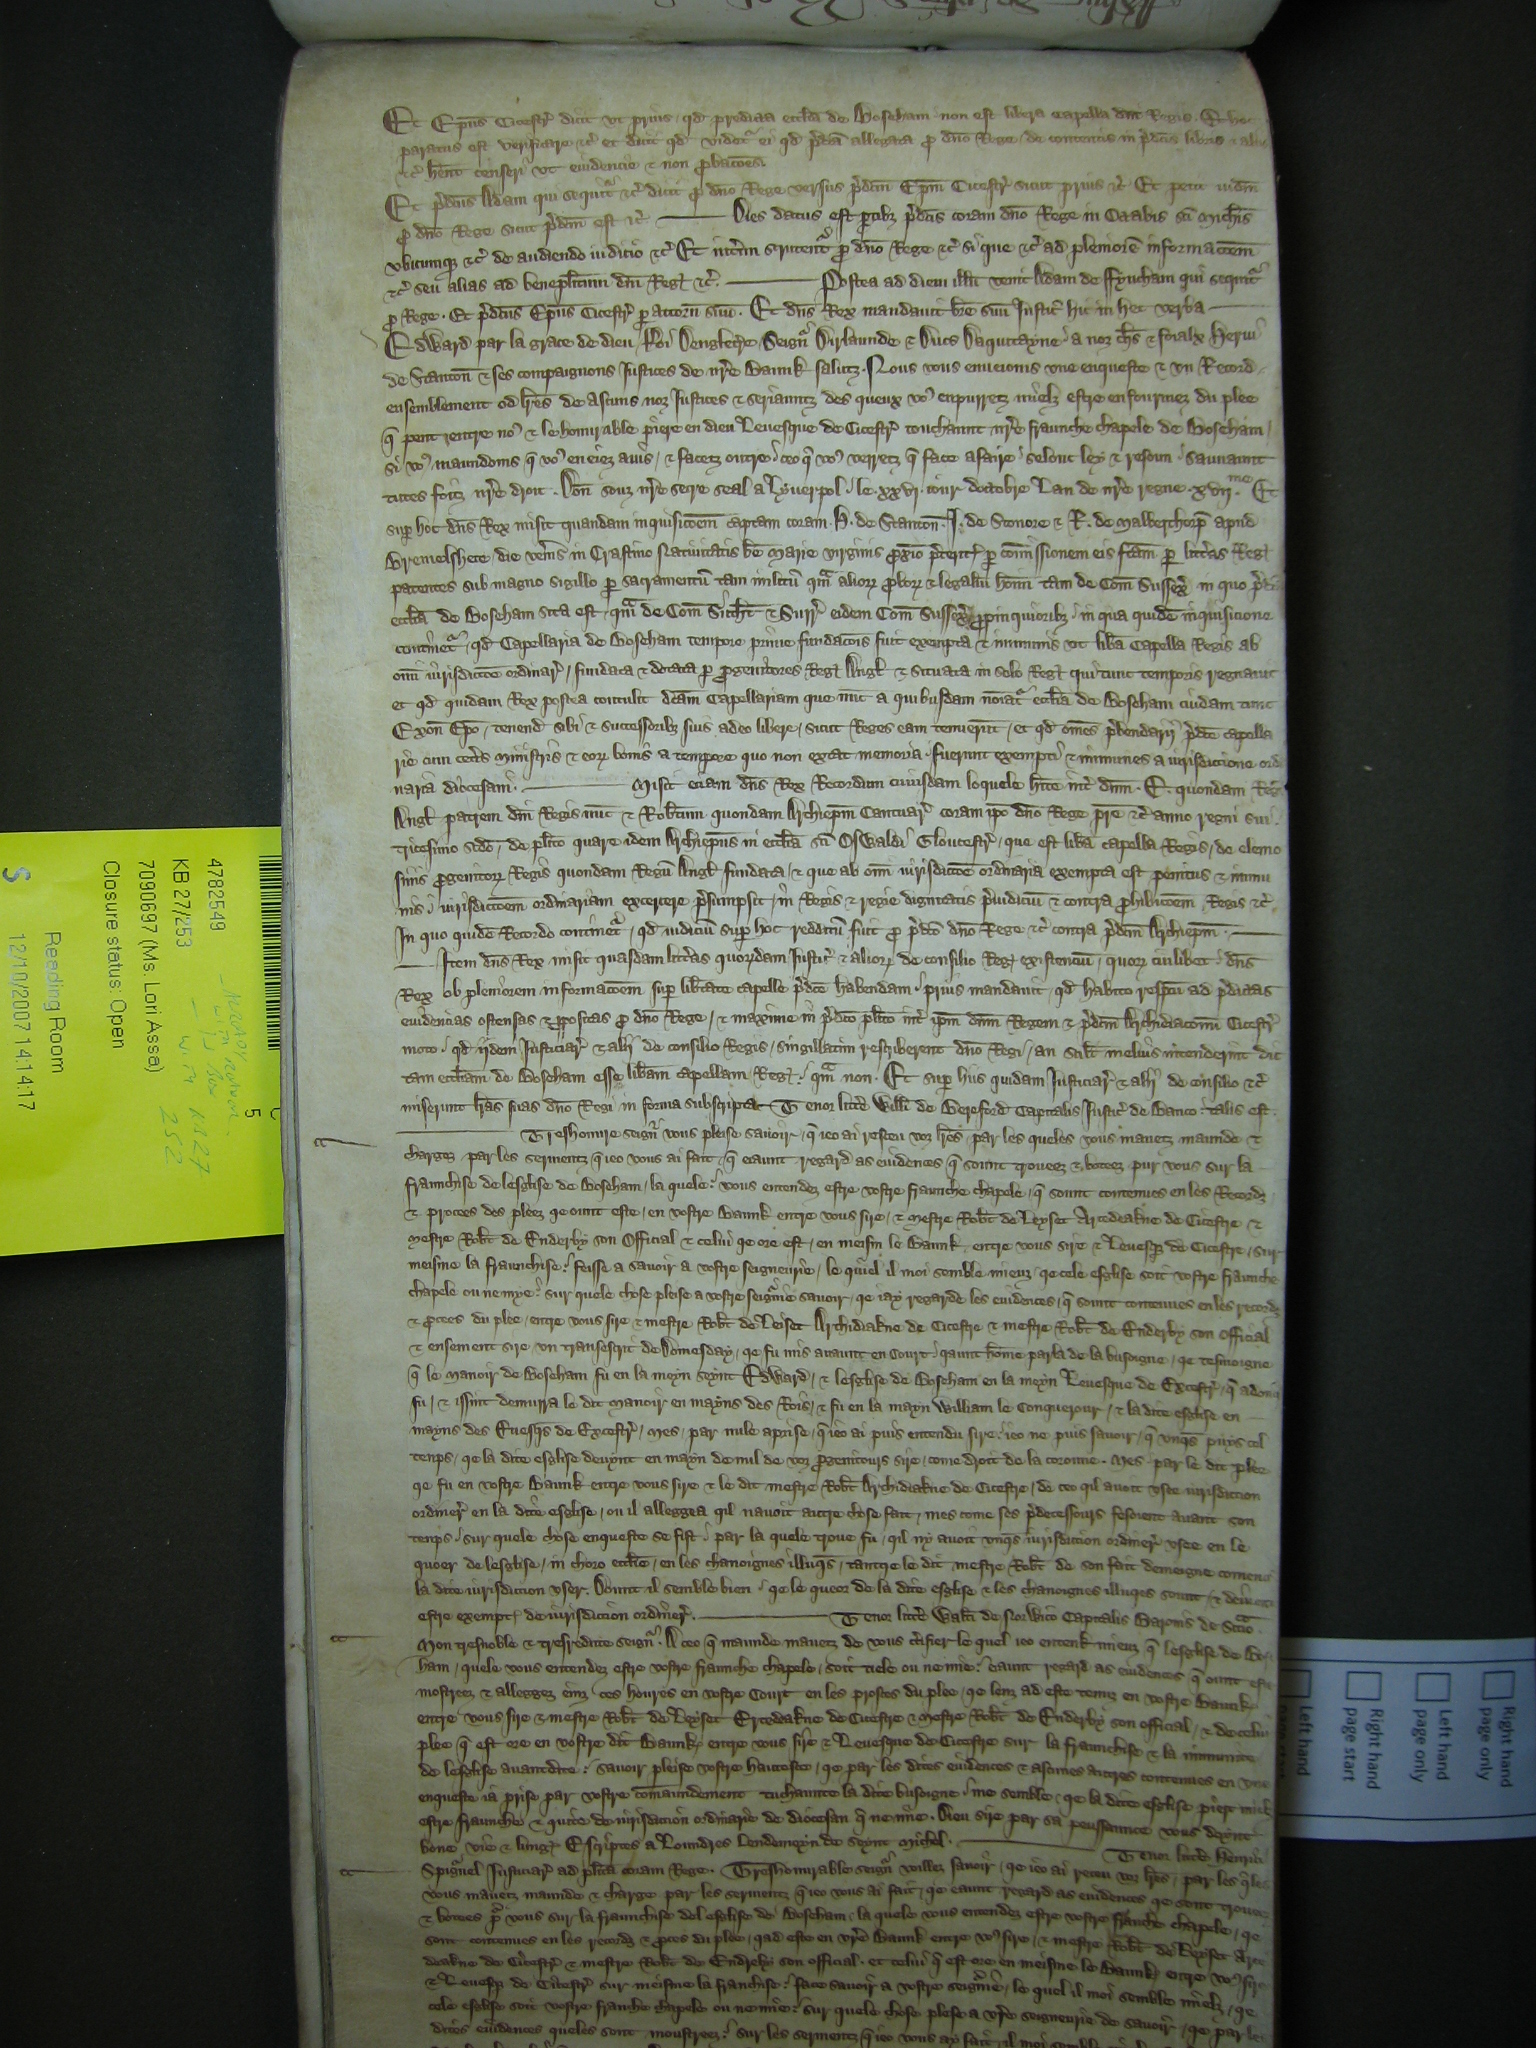 Et Ep̄us Cicestr̄ dicit vt prius qd̄ predicta eccl̄ia de Boseham non est libera capella dn̄i Regis Et hoc
paratus est verificare ⁊c̄ et dicit qd̄ videt᷑ ei qd̄ p̄dc̄a allegata p dn̄o Rege de contentis in p̄dc̄is libris ⁊ aliis
⁊c̄ hn̄t censeri vt euidencie ⁊ non pbac̄oes
Et p̄dc̄us Adam qui sequit᷑ ⁊c̄ dicit p dn̄o Rege versus p̄dc̄m Ep̄m Cicestr̄ sicut prius ⁊c̄ Et petit iudm̄
p dn̄o Rege sicut p̄dc̄m est ⁊c̄ Dies datus est ptib₃ p̄dc̄is coram dn̄o Rege in Octabis sc̄i Mich̄is
vbicumq₃ ⁊c̄ de audiendo iudicio ⁊c̄ Et int̄im scrutent᷑ p dn̄o Rege ⁊c̄ si que ⁊c̄ ad pleniorē informac̄oem
⁊c̄ seu alias ad beneplitum dn̄i Reḡ ⁊c̄ Postea ad diem illū venit Adam de Fyncham qui sequit᷑
p Rege Et p̄dc̄us Ep̄us Cicestr̄ p attorn̄ suū Et dn̄s Rex mandauit br̄e suū Justic̄ hic in hec verba
Edward par la grace de dieu Roi Dengleterre Seign᷑ Dirlaunde ⁊ Ducs Daquitayne a noz ch̄s ⁊ foialx Herui
de Stanton̄ ⁊ ses compaignons Justices de nr̄e Baunk salutz Nous vous enueioms vne enqueste ⁊ vn Record
ensemblement od lr̄es de ascuns noz Justices ⁊ seriauntz des queux voꝰ enpurretz mielz estre enfourmez du plee
q̄ pent entre noꝰ ⁊ le honurable piere en dieu Leuesque de Cicestr̄ touchaunt nr̄e fraunche chapele de Boseham
si voꝰ maundoms q̄ voꝰ en eiez auis ⁊ facetz outre ceo q̄ voꝰ verretz q̄ face afaire solonc ley ⁊ resoun sauuaunt
tutes foitz nr̄e droit Don̄ souz nr̄e secre seal a Lyuerpol le xxvi iour doctobre Lan de nr̄e regne xvii me Et
sup hoc dn̄s Rex misit quandam inquisic̄oem captam coram H de Stanton̄ J de Stonore ⁊ R de Malberthorp̄ apud
Bremelshete die ven̄is in Crastino Natiuitatis be Marie virginis pximo p̄terit̄ p com̄issionem eis fc̄am p litt̄as Reḡ
patentes sub magno sigillo p sacramentū tam militū qm̄ alior₄ pbor₄ ⁊ legaliū hoīm tam de Com̄ Sussex̄ in quo p̄dc̄a
eccl̄ia de Boseham sita est qm̄ de Com̄ Suth̄t ⁊ Surr̄ eidem Com̄ Sussex̄ ppinquiorib₃ in qua quidē inquisicione
continet᷑ qd̄ Capellaria de Boseham tempore prime fundac̄ois fuit exempta ⁊ inmunis vt lib̄a Capella Regis ab
om̄i iurisdicc̄oe ordinar̄ fundata ⁊ dotata p pgenitores Reḡ Angl̄ ⁊ situata in solo Reḡ qui tunc temporis regnauit
et qd̄ quidam Rex postea contulit dc̄am Capellariam que nūc a quibusdam no͞iat᷑ eccl̄ia de Boseham cuidam tunc
Exon̄ Ep̄o tenend̄ sibi ⁊ successorib₃ suis adeo libere sicut Reges eam tenuer̄t et qd̄ om̄es p̄bendarij p̄dc̄e capella
rie cum cet̄is ministris ⁊ eor₄ bonis a tempore quo non extat memoria fuerunt exempti ⁊ inmunes a iurisdictione ordi
naria diocesani Misit eciam dn̄s Rex Recordum cuiusdam loquele hīte int̄ dn̄m E quondam Reg̅
Angl̄ patrem dn̄i Regis nūc ⁊ Rob̄tum quondam Archiep̄m Cantuar̄ coram ip̄o dn̄o Rege pr̄e ⁊c̄ anno regni sui
tricesimo sc̄do de plīto quare idem Archiep̄us in eccl̄ia sc̄i Oswaldi Gloucestr̄ que est lib̄a capella Regis de elemo
sinis pgenitor₄ Regis quondam Regū Angl̄ fundata ⁊ que ab om̄i iurisdicc̄oe ordinaria exempta est penitus ⁊ inmu
nis iurisdicc̄oem ordinariam exercere p̄sumpsit in Regis ⁊ regie dignitatis p̄iudiciū ⁊ contra phibic̄oem Regis ⁊c̄
In quo quidē Recordo continet᷑ qd̄ iudiciū sup hoc redditū fuit p p̄dc̄o dn̄o Rege ⁊c̄ contra p̄dc̄m Archiep̄m
Item dn̄s Rex misit quasdam litt̄as quor₄dam Justic̄ ⁊ alior₄ de consilio Reḡ existenciū quor₄ cuilibet dn̄s
Rex ob pleniorem informac̄oem sup lib̄tate capelle p̄dc̄e habendam prius mandauit qd̄ habito respc̄u ad p̄dictas
euidencias ostensas ⁊ ppositas p dn̄o Rege ⁊ maxime in p̄dc̄o plīto int̄ ip̄m dn̄m Regem ⁊ p̄dc̄m Archidiaconū Cicestr̄
moto qd̄ ijdem Justiciar̄ ⁊ alij de consilio Regis singillatim rescriberent dn̄o Regi an scil̄t melius intenderint dic
tam eccl̄iam de Boseham esse lib̄am capellam Reḡ qm̄ non Et sup hiis quidam Justiciar̄ ⁊ alij de consilio ⁊c̄
miserunt lr̄as suas dn̄o Regi in forma subscripta Tenor littē Will̄i de Bereford Capitalis Justic̄ de Banco talis est
Treshonure seign᷑ vous pleise sauoir q̄ ieo ai resceu voz lr̄es par les queles vous mauetz maunde ⁊
chargez par les sermentz q̄ ieo vous ai fait q̄ eaunt regard as euidences q̄ sount trouees ⁊ botees pur vous sur la
fraunchise de lesglise de Boseham la quele vous entendez estre vostre fraunche chapele q̄ sount contenues en les Recordz
⁊ proces des pleez qe ount este en vostre Baunk entre vous sire ⁊ mestre Rob̄t de Leyset Arcedeakne de Cicestre ⁊
mestre Rob̄t de Enderby son Official ⁊ celui qe ore est en meism le Baunk entre vous sire ⁊ Leuesq₃ de Cicestre sur
meisme la fraunchise feisse a sauoir a vostre seigneurie le quel il moi semble mieuz qe cele esglise soit vostre fraunche
chapele ou ne mye sur quele chose pleise a vostre seign᷑ie sauoir qe iay regarde les euidences q̄ sount contenues en les recordz
⁊ pces du plee entre vous sire ⁊ mestre Rob̄t de Leiset Archidiakne de Cicestre ⁊ mestre Rob̄t de Enderby son official
⁊ ensement sire vn transescrit de Domesday qe fu mis auaunt en Court qaunt home parla de la busoigne qe tesmoigne
q̄ le manoir de Boseham fu en la meyn seynt Edward ⁊ lesglise de Boseham en la meyn Leuesque de Excestr̄ q̄ adonqs
fu ⁊ issint demurra le dit manoir en mayns des Rois ⁊ fu en la mayn William le Conquerour ⁊ la dite esglise en
mayns des Euesqs de Excestr̄ mes par nule aprise q̄ ieo ai puis entendu sire ieo ne puis sauoir q̄ vnqs puys cel
temps qe la dite esglise deuynt en mayn de nul de voz pgenitours sire come droit de la coroune Mes par le dit plee
qe fu en vostre Baunk entre vous sire ⁊ le dit mestre Rob̄t Archidiakne de Cicestre de ceo qil auoit vse iurisdiction
ordiner̄ en la dite esglise ou il alleggea qil nauoit autre chose fait mes come ses p̄decessours fesoient auant son
temps sur quele chose enqueste se fist par la quele troue fu qil ny auoit vnqs iurisdiction ordiner̄ vsee en le
quoer de lesglise in choro eccl̄ie en les chanoignes illuqs tantqe le dit mestre Rob̄t de son fait demeigne comenca
la dite iurisdiction vser Dount il semble bien qe le queor de la dite esglise ⁊ les chanoignes illuqes sount ⁊ deiuent
estre exempt de iurisdiction ordiner̄ Tenor littē Walt̄i de Norwico Capitalis Baronis de Sccō
Mon tresnoble ⁊ tresredoute seign᷑ A ceo q̄ maunde mauetz de vous c̄tifier le quel ieo entenk mieuz q̄ lesglise de Bose
ham quele vous entendez estre vostre fraunche chapele soit tiele ou ne mie eaunt regard as euidences q̄ ount este
mostrees ⁊ alleggez einz ces houres en vostre Court en les proces du plee qe lenz ad este tenuz en vostre Baunk
entre vous sire ⁊ mestre Rob̄t de Leyset Ercedeakne de Cicestre ⁊ mestre Rob̄t de Enderby son official ⁊ de celui
plee q̄ est ore en vostre dit Baunk entre vous sire ⁊ Leuesque de Cicestre sur la fraunchise ⁊ la inmunite
de lesglise auantdite sauoir pleise vostre hautesce qe par les dites euidences ⁊ ascunes autres contenues en vne
enqueste ia prise par vostre comaundement tuchaunte la dite busoigne me semble qe la dite esglise piert mielz
estre fraunche ⁊ quite de iurisdiction ordinarie de diocesan q̄ ne mie Dieu sire par sa peussaunce vous deynt
bone vie ⁊ lunge Escriptes a Loundres lendemeyn de Seynt Michel Tenor littē Henrici
Spigurnel Justiciar̄ ad plīta coram Rege Treshonurable seign᷑ voillez sauoir qe ieo ai receu voz lr̄es par les q̄les
vous mauetz maunde ⁊ charge par les sermentz q̄ ieo vous ai fait qe eaunt regard as euidences qe sont trouees
⁊ botees pr̄ vous sur la fraunchise del esglise de Boseham la quele vous entendez estre vostre franche chapele qe
sont contenues en les recordz ⁊ pces du plee qad este en vr̄e Baunk entre voꝰ sire ⁊ mestre Rob̄t de Leyset Arce
deakne de Cicestr̄ ⁊ mestre Rob̄t de Endreby son official et celui q̄ est ore en meisme le Baunk entre voꝰ sire
⁊ Leuesq₃ de Cicestr̄ sur meisme la franchise face sauoir a vostre seign᷑ie le quel il moi semble mielz qe
cele esglise soit vostre franche chapele ou ne mie sur quele chose plese a vr̄e seigneurie de sauoir qe par les
dites euidences queles sont moustreez sur les sermentz q̄ ieo vous ay fait il moi semble
4782549
KB 27/253
7090697 (Ms. Lori Assa)
Closure status: Open
Reading Room
12/10/2007 14:14:17
S
5
252
Right hand page only
Left hand page only
Right hand page start
Left hand